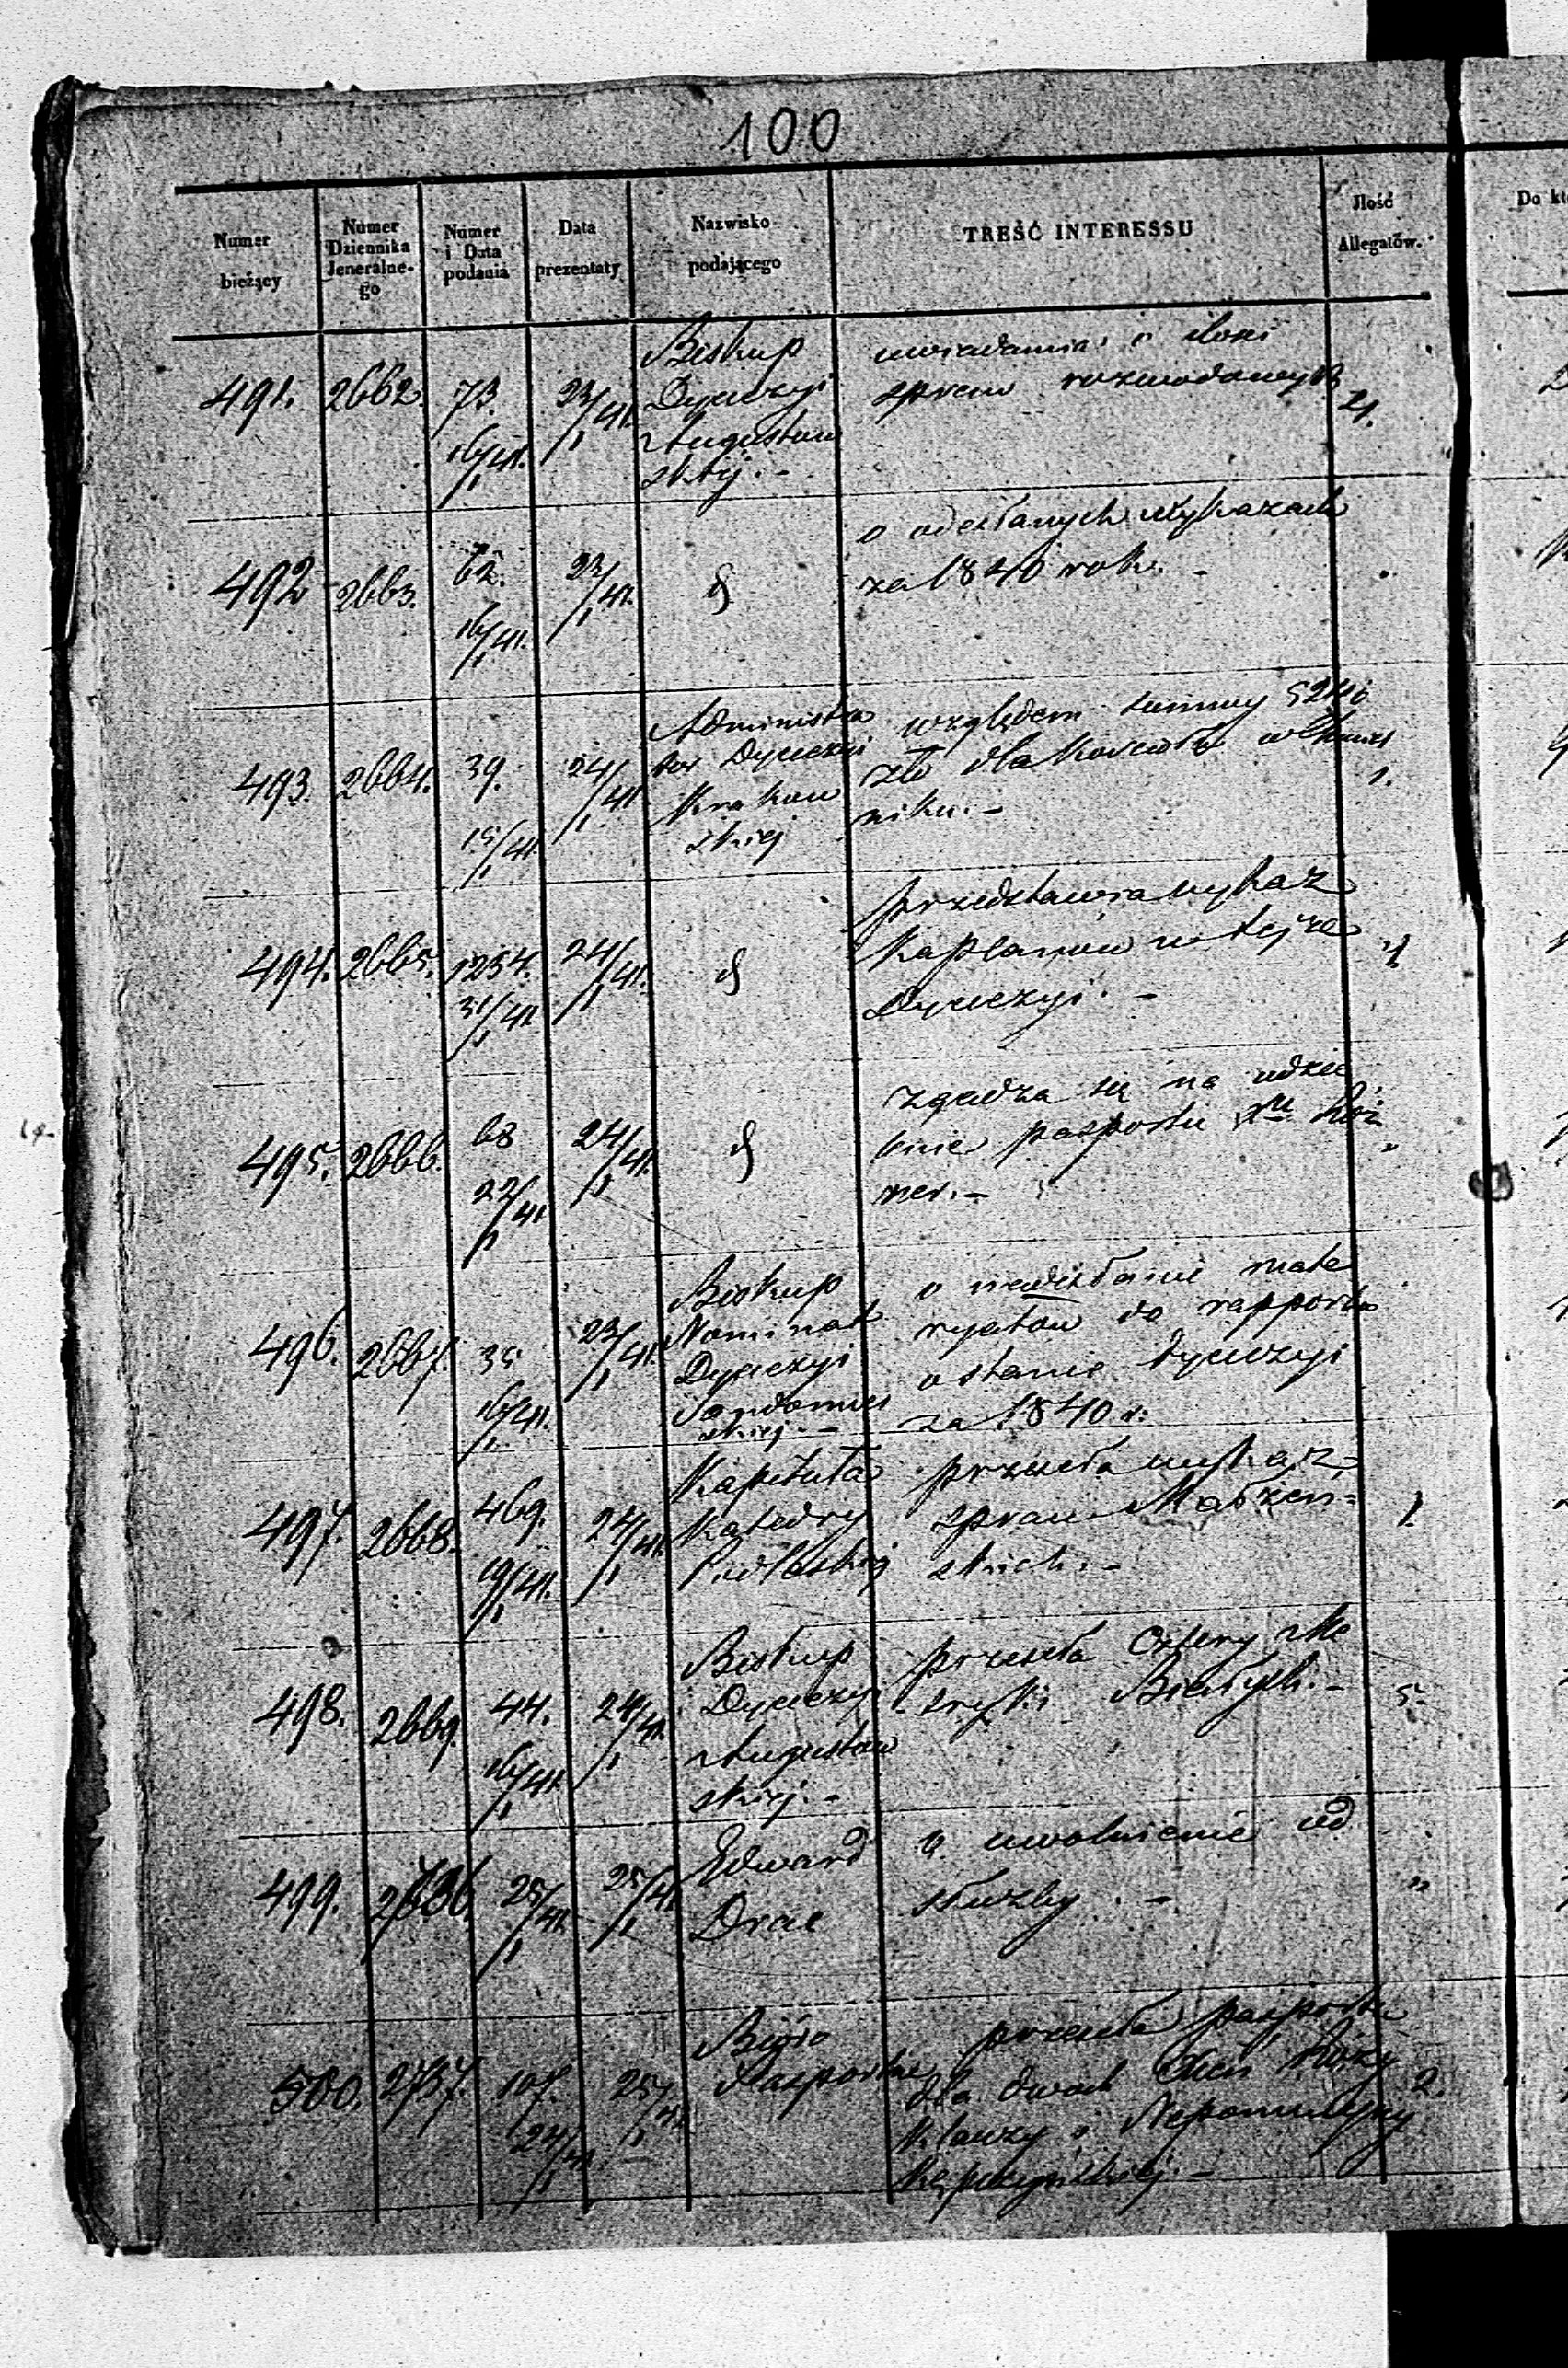 100
Numer bieżący
Numer Dziennika Jeneralne-go
Numer i Data podania
Data prezentaty
Nazwisko podającego
TREŚĆ INTERESSU
Ilość Allegatów.
491. 2662. 73. 16/1 41. 23/1 41.
Biskup
Dyecezyi
Augustow
skiej.-
uwiadamia o ilości
spraw rozwodowych
492 2663. 62. 16/1 41. 23/1 41.
o odesłanych wykazach
za 1840 rok.-
493. 2664. 39. 15/1 41. 24/1 41 1.
Administra
tor Dyecezyi
Krakow
skiej
względem summy
zło dla kościoła w
niku.-
494. 2665. 1254. 31/1 41. 24/1 41.
przedstawia wykaz
kapłanow w tejże
Dyecezyi.-
495. 2666. 68 22/1 41. 24/1 41. "
zgadza się na udzie
lenie pasportu
ner.-
496. 2667. 35 16/1 41. 23/1 41.
Biskup
Nominat
Dyecezyi
Sandomier
skiej.-
o mate
ryałow do rapportu
o stanie Dyecezyi
za 1840 r:
497. 2668. 469. 19/1 41. 24/1 41. 1.
Kapituła
Katedry
Podlaskiej
przeseła wykaz
spraw Małżeń=
skich.-
498. 2669. 44. 16/1 41. 24/1 41. 5.
Biskup
Dyecezyi
Augustow
skiej.-
przeseła cztery Me
tryki
499. 2736. 25/1 41. 25/1 41. "
Edward
Drae
o uwolnienie od
służby.-
500. 2737. 107. 24/1 41 25/1 41. 2.
Bióro
Pasportów
przeseła pasporta
dla dwoch Róży
Klawzy i